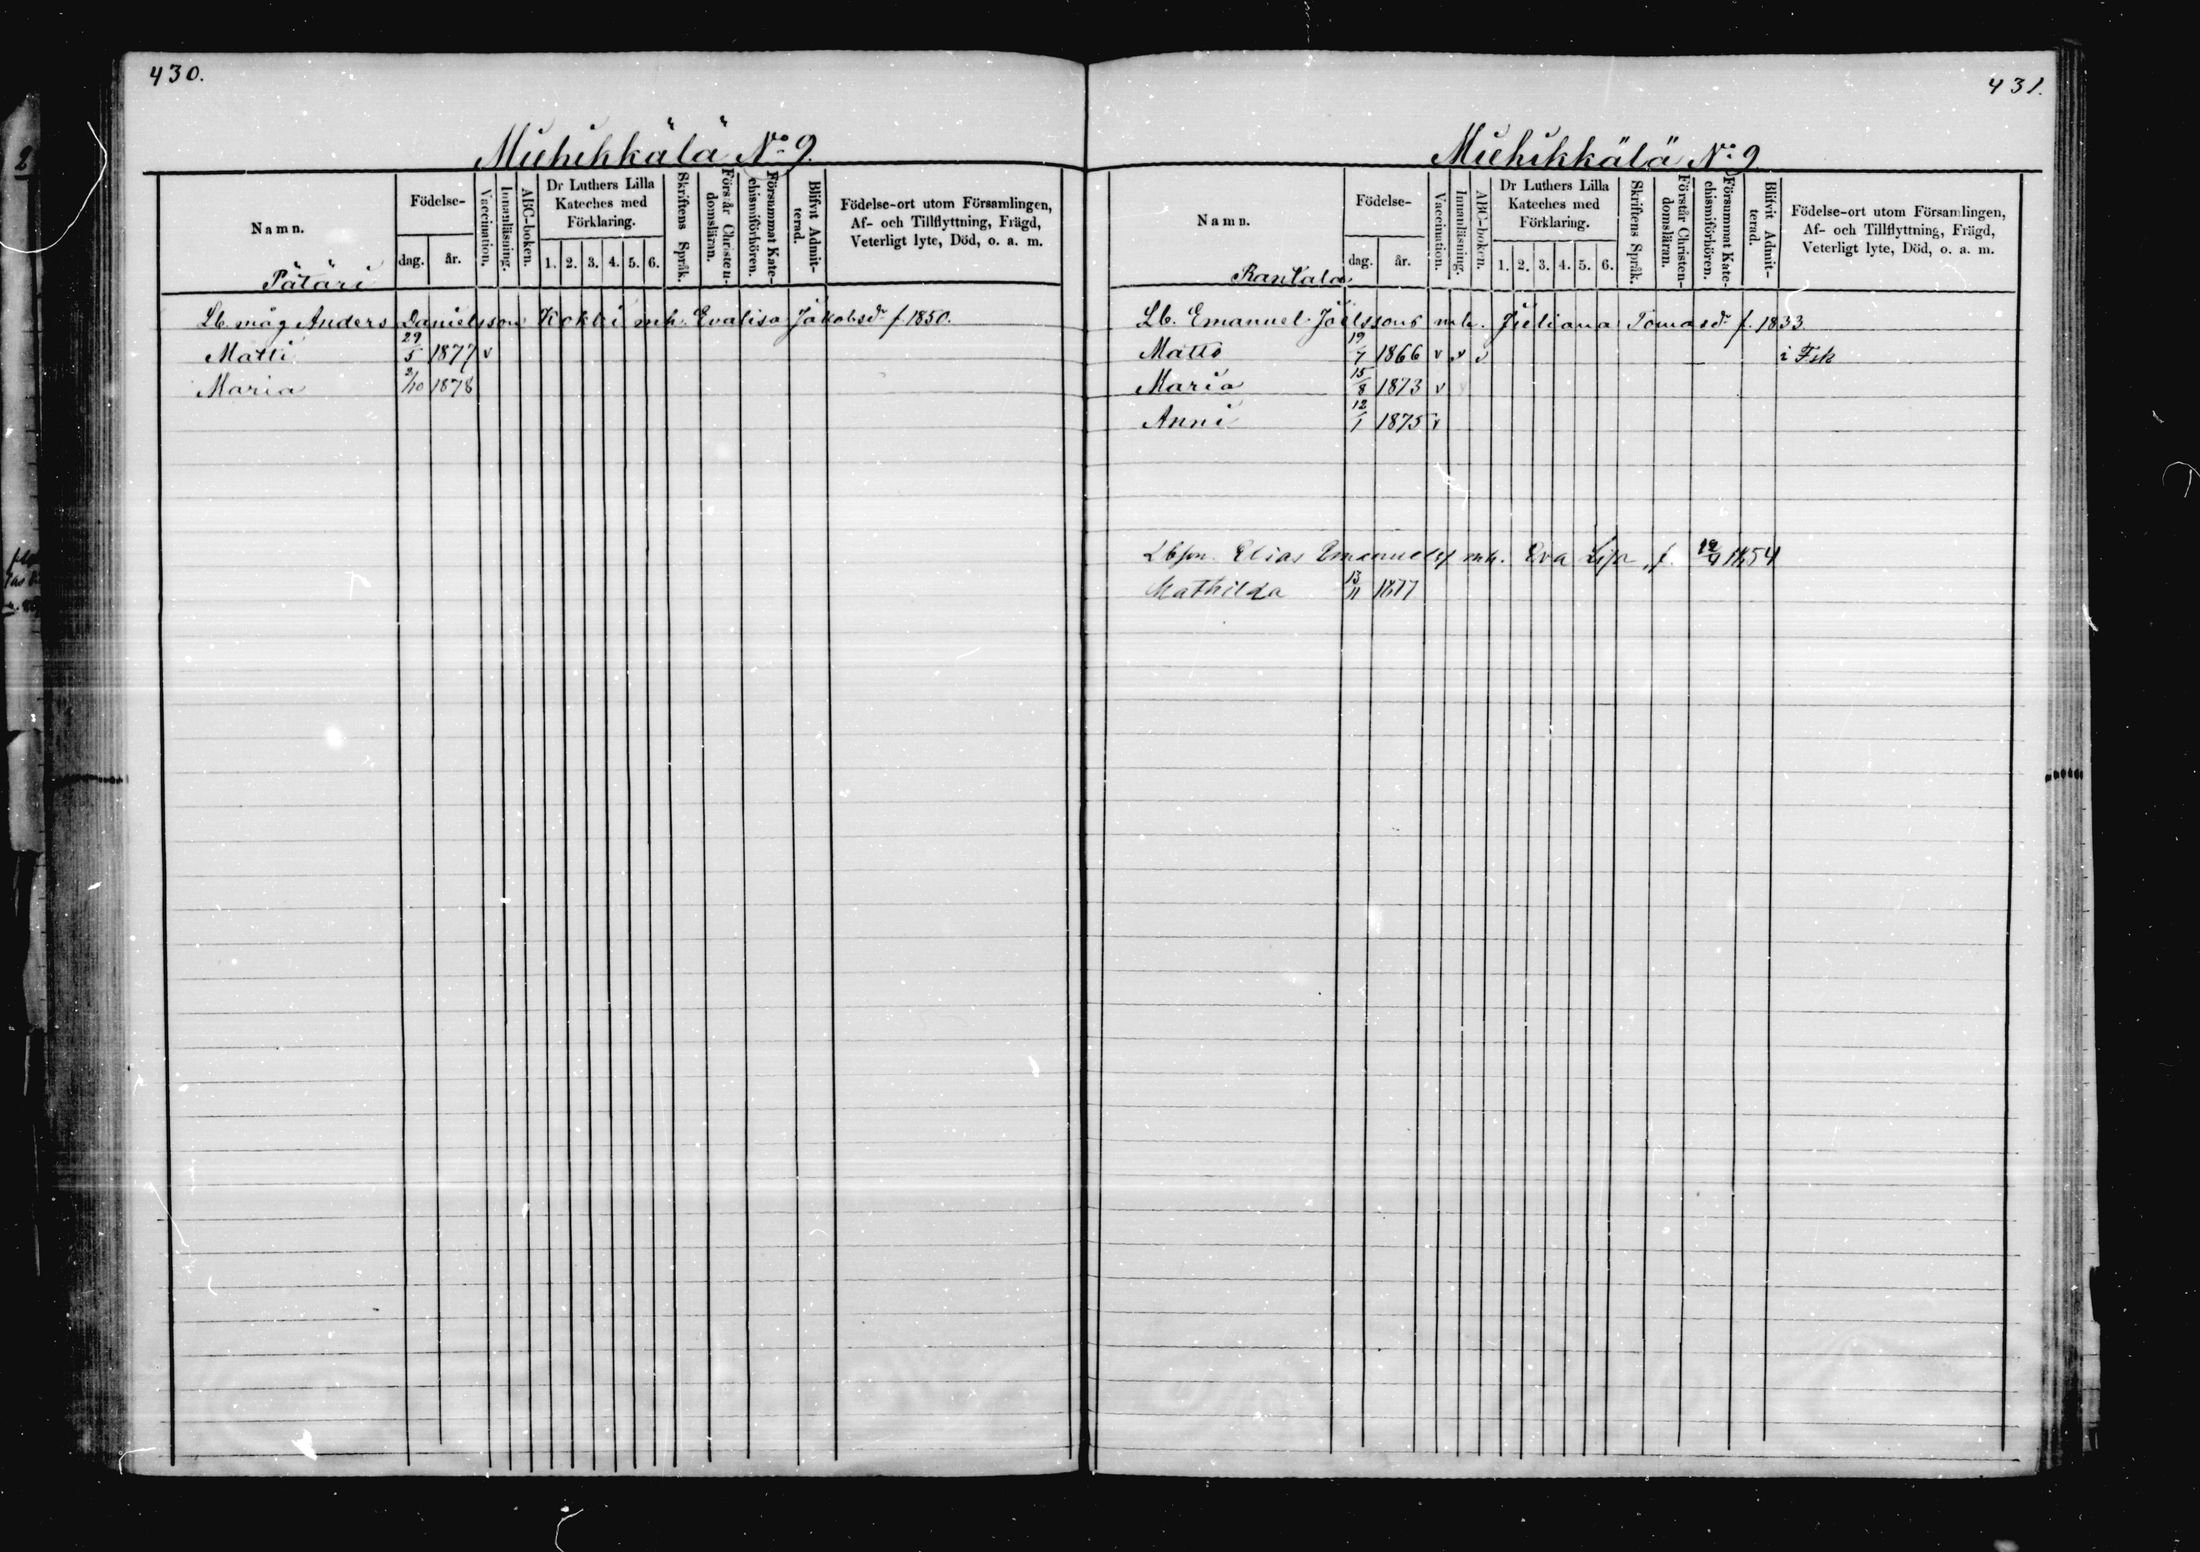 430.
Miehikkälä No 9.
Namn.
Födelse-
dag.
år.
Vaccination.
Innanläsning.
ABC-boken.
Dr Luthers Lilla
Kateches med
Förklaring.
1. 2. 3. 4. 5. 6.
Skriftens Språk.
Förstår Christen-
domsläran.
Försummat Kate-
chismiförhören.
Blifvit Admit-
terad.
Födelse-ort utom Församlingen,
Af- och Tillflyttning, Frägd,
Veterligt lyte, Död, o. a. m.
Pätäri
Lb. måg Anders Danielsson Kokki mh. Evalisa Jakobsdr f. 1850.
Matti 29/5 1877 v
Maria 2/10 1878
431.
Miehikkälä No 9
Namn.
Födelse-
dag.
år.
Vaccination.
Innanläsning.
ABC-boken.
Dr Luthers Lilla
Kateches med
Förklaring.
1. 2. 3. 4. 5. 6.
Skriftens Språk.
Förstår Christen-
domsläran.
Försummat Kate-
chismiförhören.
Blifvit Admit-
terad.
Födelse-ort utom Församlingen,
Af- och Tillflyttning, Frägd,
Veterligt lyte, Död, o. a. m.
Rantala
Lb. Emanuel Joelssons mh. Juliana Tomasdr f. 1833.
Matts 19/7 1866 v v v i Fsk
Maria 15/8 1873 v
Anni 12/1 1875 v
Lbson Elias Emanuels mh. Eva Lisa f. 1854
Mathilda 13/11 1877